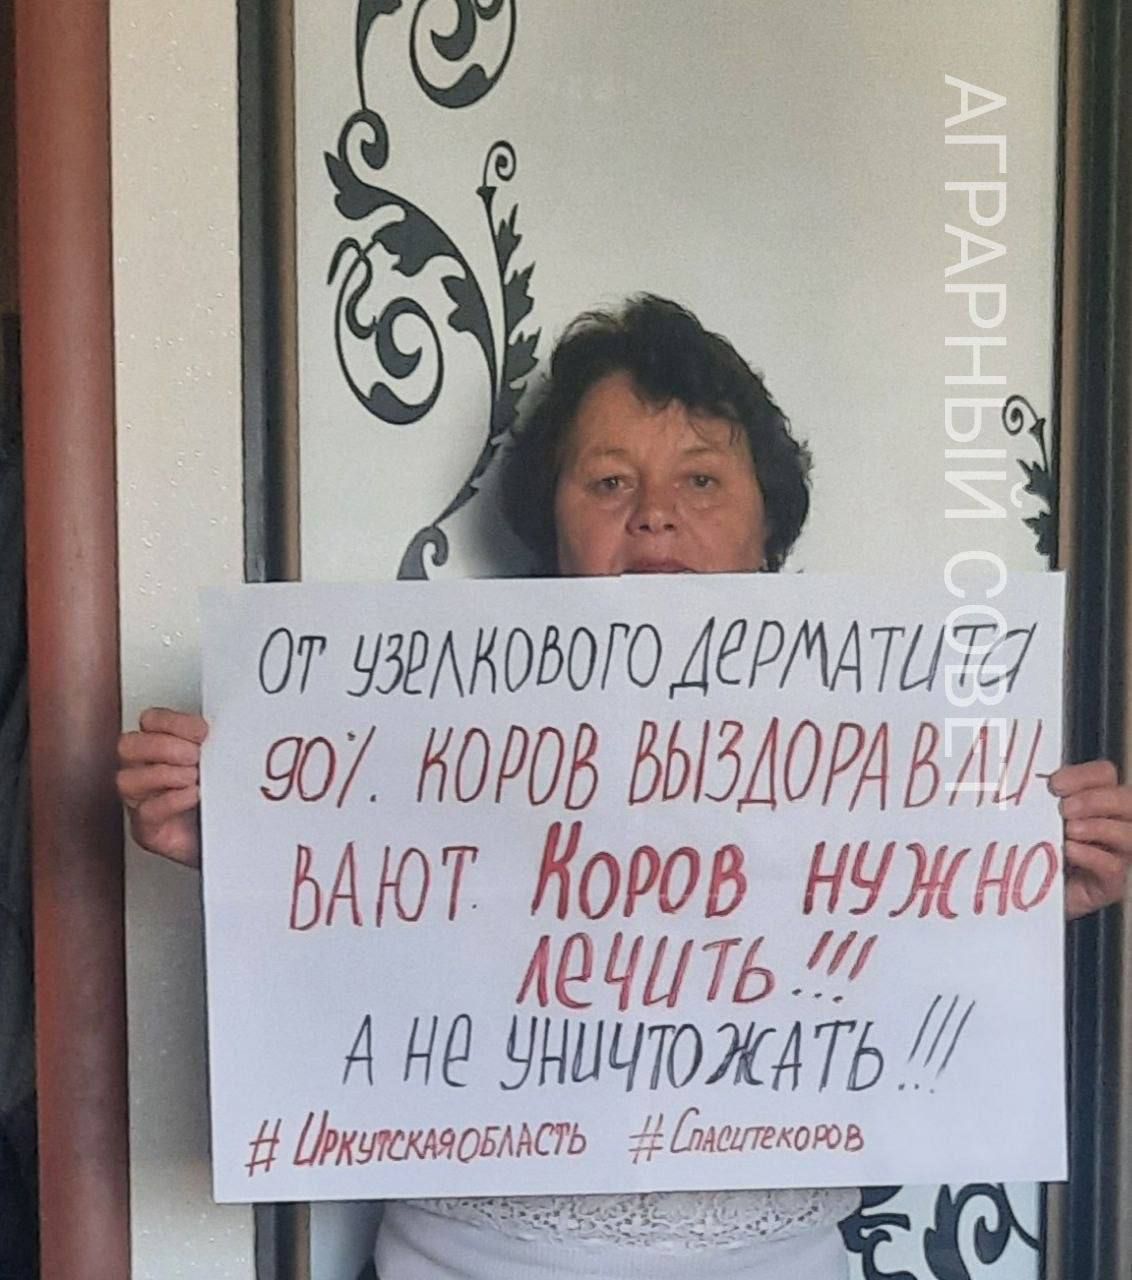 ОТ УЗЕЛКОВОГО ДЕРМАТИТА
90%. КОРОВ ВЫЗДОРАВЛИ-
ВАЮТ. КОРОВ НУЖНО
ЛЕЧИТЬ!!!
А НЕ УНИЧТОЖАТЬ!!!
# ИРКУТСКАЯОБЛАСТЬ #СПАСИТЕКОРОВ
АГРАРНЫЙ СОВЕТ